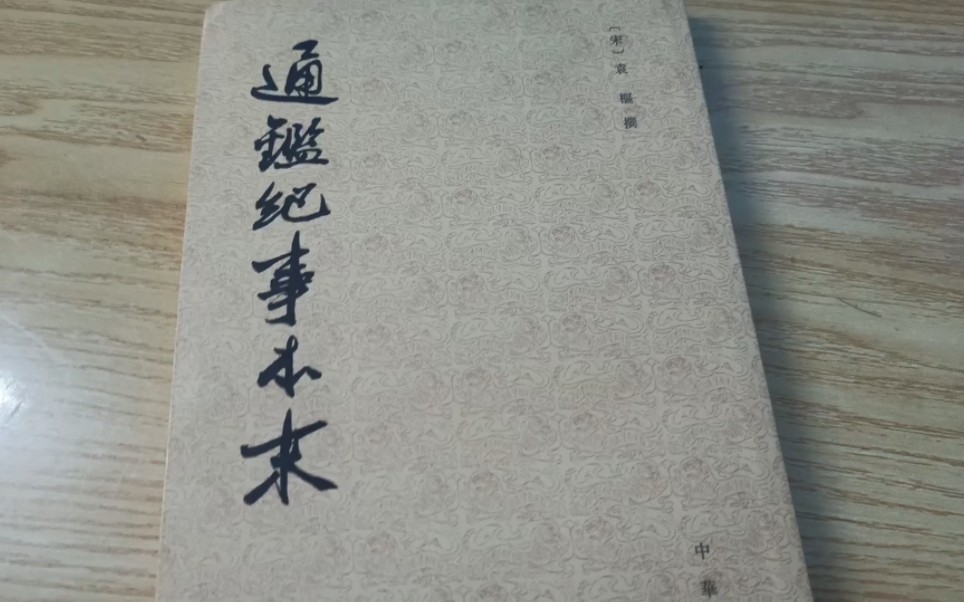 〔宋〕袁樞撰
通鑑紀事本末
中華